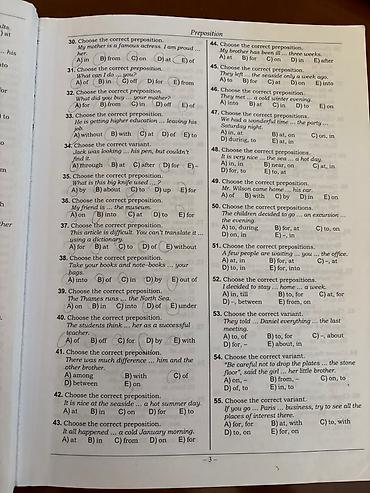 Preposition
30. Choose the correct preposition.
My mother is a famous actress. I am proud ...
her.
A) in B) for C) on D) at E) of
31. Choose the correct preposition.
What can I do ... you?
A) of B) in C) off D) for E) from
32. Choose the correct preposition.
What did you buy ... your mother?
A) for B) from C) in D) off E) of
33. Choose the correct preposition.
He is getting higher education ... leaving his
job.
A) without B) with C) at D) of E) to
34. Choose the correct variant.
Jack was looking ... his pen, but couldn't
find it.
A) through B) at C) after D) for E) -
35. Choose the correct preposition.
What is this big knife used ...
A) by B) about C) to D) up E) for
36. Choose the correct preposition.
My friend is ... the museum.
A) on B) into C) at D) to E) for
37. Choose the correct preposition.
This article is difficult. You can't translate it ...
using a dictionary.
A) for B) at C) to D) of E) without
38. Choose the correct preposition.
Take your books and note-books ... your
bags.
A) into B) of C) in D) by E) out of
39. Choose the correct preposition.
The Thames runs ... the North Sea.
A) on B) in C) into D) of E) under
40. Choose the correct preposition.
The students think ... her as a successful
teacher.
A) of B) off C) for D) by E) with
41. Choose the correct preposition.
There was much difference ... him and the
other brother.
A) among B) with C) of
D) between E) on
42. Choose the correct preposition.
It is nice at the seaside ... a hot summer day.
A) at B) in C) on D) for E) to
43. Choose the correct preposition.
It all happened ... a cold January morning.
A) at B) in C) from D) on E) for
44. Choose the correct preposition.
My brother has been ill ... three weeks.
A) at B) for C) on D) in E) after
45. Choose the correct preposition.
They left ... the seaside only a week ago.
A) to B) at C) for D) on E) into
46. Choose the correct preposition.
They met ... a cold winter evening.
A) into B) at C) in D) to E) on
47. Choose the correct preposition.
We had a wonderful time ... the party ...
Saturday night.
A) in, at B) at, on C) on, in
D) during, to E) at, in
48. Choose the correct preposition.
It is very nice ... the sea ... a hot day.
A) in, in B) near, on C) at, in
D) for, to E) to, at
49. Choose the correct preposition.
Mr. Wilson came home ... his car.
A) of B) with C) by D) in E) on
50. Choose the correct preposition.
The children decided to go ... an excursion ...
the evening.
A) to, during B) for, at C) to, on
D) on, in E) –, in
51. Choose the correct preposition.
A few people are waiting ... you ... the office.
A) at, in B) for, at C) –, at
D) to, in E) for, into
52. Choose the correct preposition.
I decided to stay ... home ... a week.
A) in, till B) to, for C) at, for
D) –, between E) from, on
53. Choose the correct variant.
They told ... Daniel everything ... the last
meeting.
A) to, of B) to, for C) –, about
D) for, – E) about, in
54. Choose the correct variant.
"Be careful not to drop the plates ... the stone
floor", said the girl ... her little brother.
A) on, – B) from, – C) on, to
D) of, to E) in, to
55. Choose the correct variant.
If you go ... Paris ... business, try to see all the
places of interest there.
A) for, for B) at, with C) to, with
D) to, on E) for, on
– 3 –